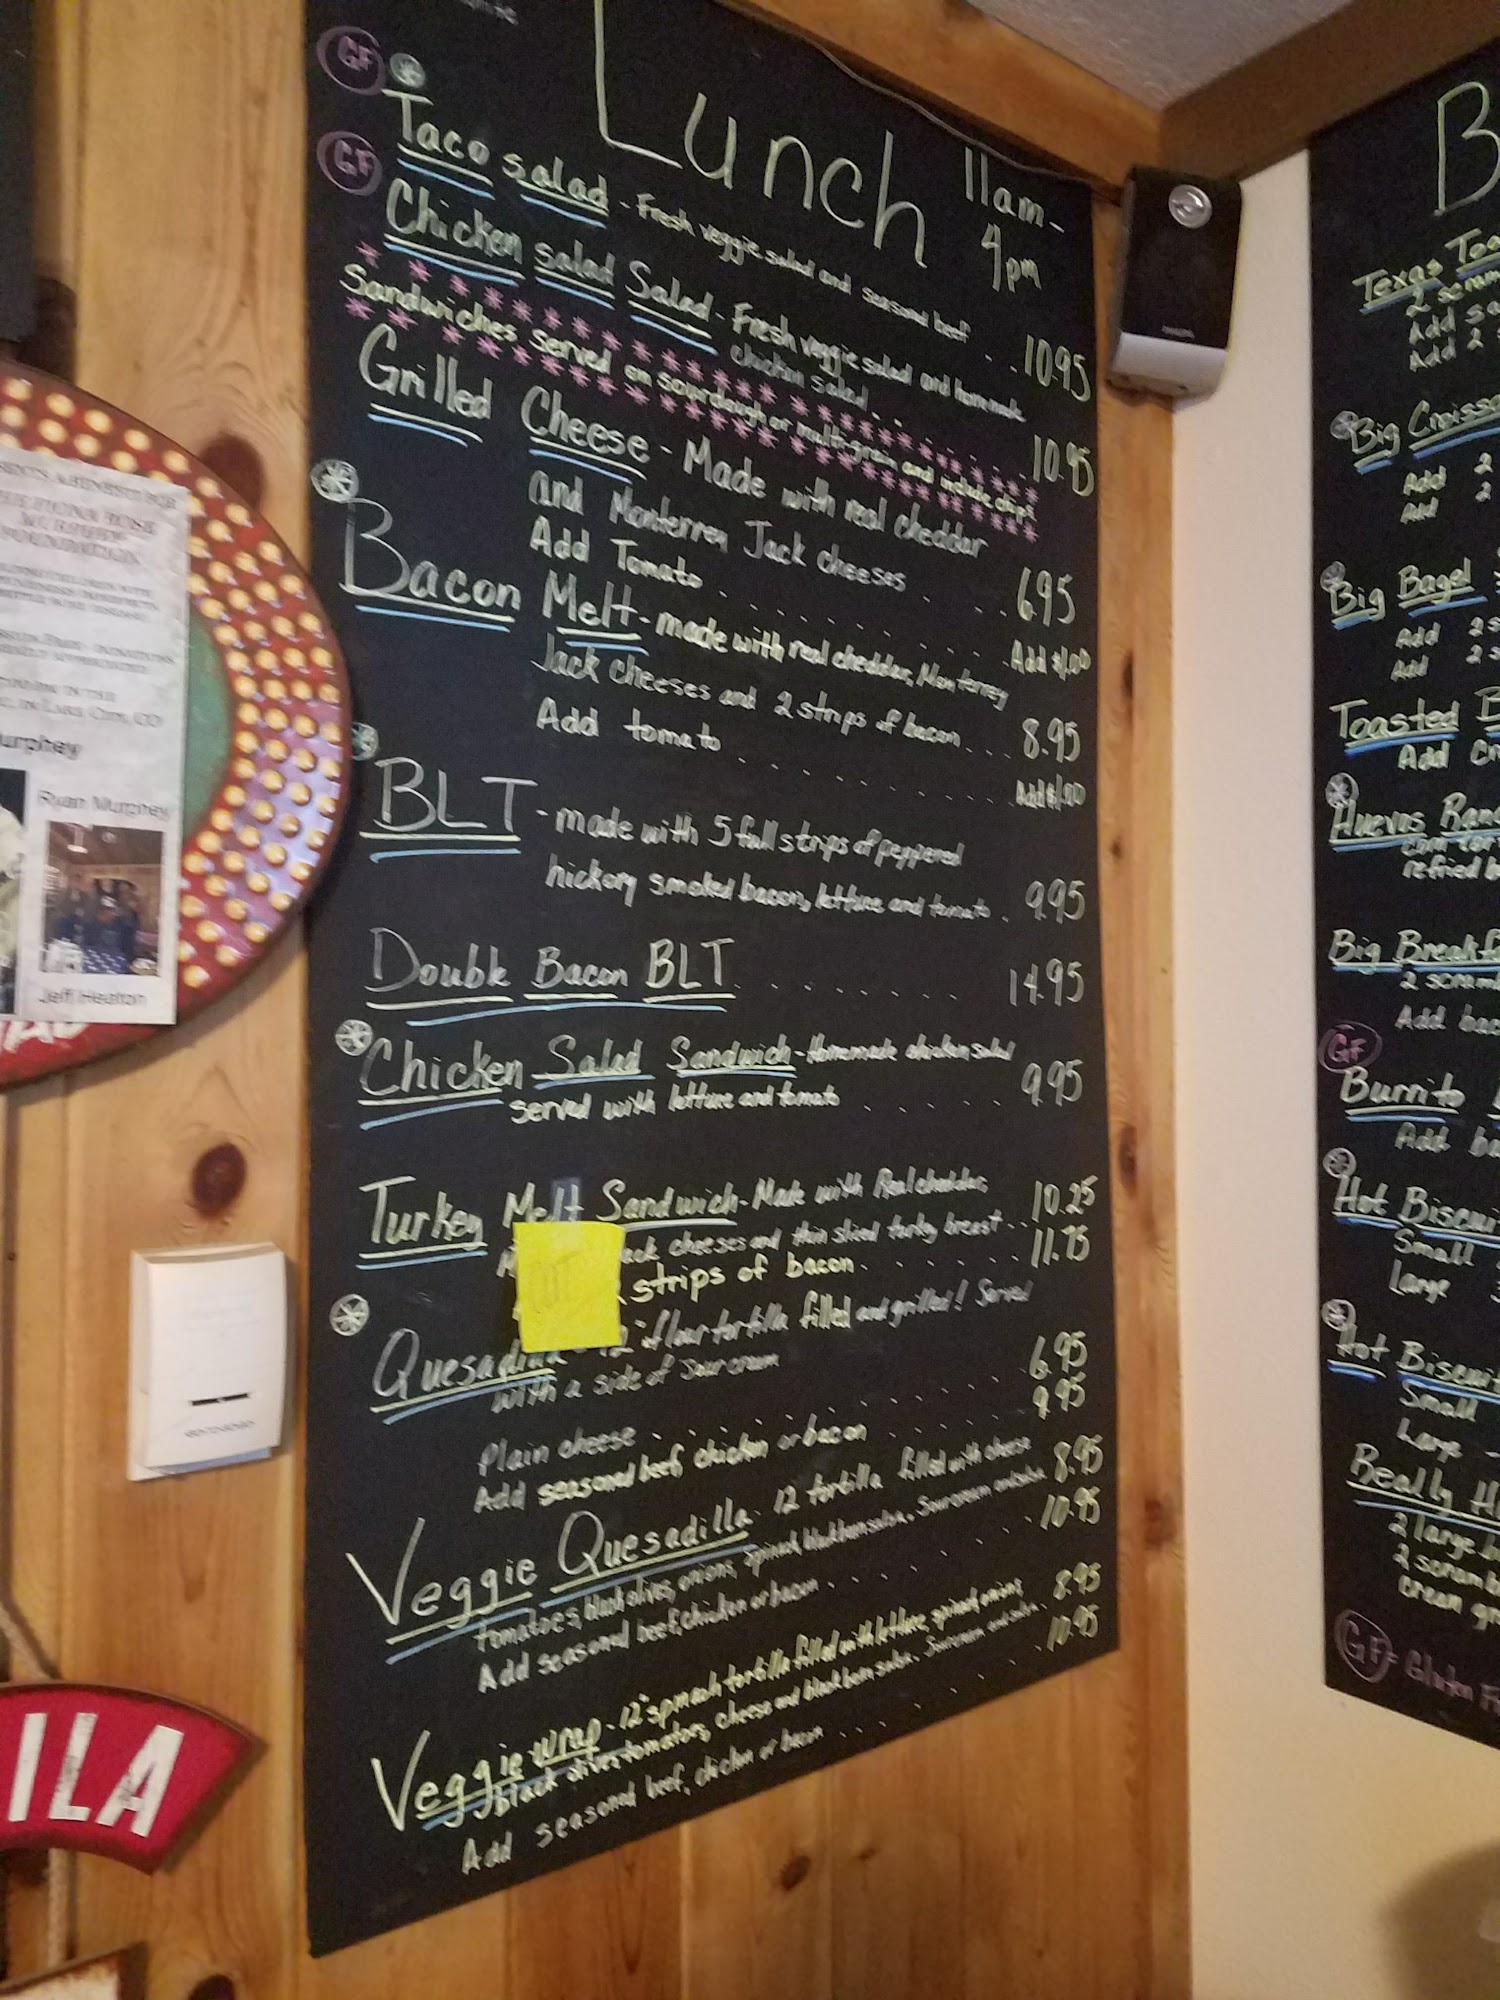 Lunch 11am-4pm
GF Taco salad - Fresh veggie salad and seasoned beef . 10.95
GF Chicken salad Salad - Fresh veggie salad and homemade
chicken salad . . . . 10.95
Sandwiches served on sourdough or multigrain and include chips
Grilled Cheese - Made with real cheddar
and Monterrey Jack cheeses . . . 6.95
Add Tomato . . . . . . . . Add $1.00
Bacon Melt - made with real cheddar, Monterrey
Jack cheeses and 2 strips of bacon . . . 8.95
Add tomato . . . . . . . . Add $1.00
BLT - made with 5 full strips of peppered
hickory smoked bacon, lettuce and tomato . 9.95
Double Bacon BLT . . . . . . . . 14.95
Chicken Salad Sandwich - Homemade chicken salad
served with lettuce and tomato . . . . . 9.95
Turkey Melt Sandwich - Made with Real cheddar,
Jack cheeses and thin sliced turkey breast . . 10.25
strips of bacon . . . . . . 11.75
Quesadilla - 12" flour tortilla filled and grilled! Served
with a side of sour cream
Plain cheese . . . . . . . . . 6.95
Add seasoned beef, chicken or bacon . . . . . 9.95
Veggie Quesadilla - 12 tortilla filled with cheese
tomatoes, black olives, onions, spinach, black bean salsa. Sour cream and salsa 8.95
Add seasoned beef, chicken or bacon . . . . . . 10.95
Veggie Wrap - 12" spinach tortilla filled with lettuce, spinach, onions,
black olives, tomatoes, cheese and black bean salsa. Sour cream and salsa . 8.95
Add seasoned beef, chicken or bacon . . . . . . 10.95
B
Texas
Add
Add 2
Big Croiss
Add 2
Add 2
Big Bagel
Add 2
Add 2
Toasted B
Add
Huevos Ran
refried
Big Breakf
2 scram
Add bac
GF
Burrito
Add ba
Hot Biscui
Small
Large
Hot Biscui
Small
Large
Really H
2 large
2 scram
cream
GF = Gluten F
FOUNDATION
Lake City, CO
Murphey
Ryan Murphey
Jeff Heaton
ILA